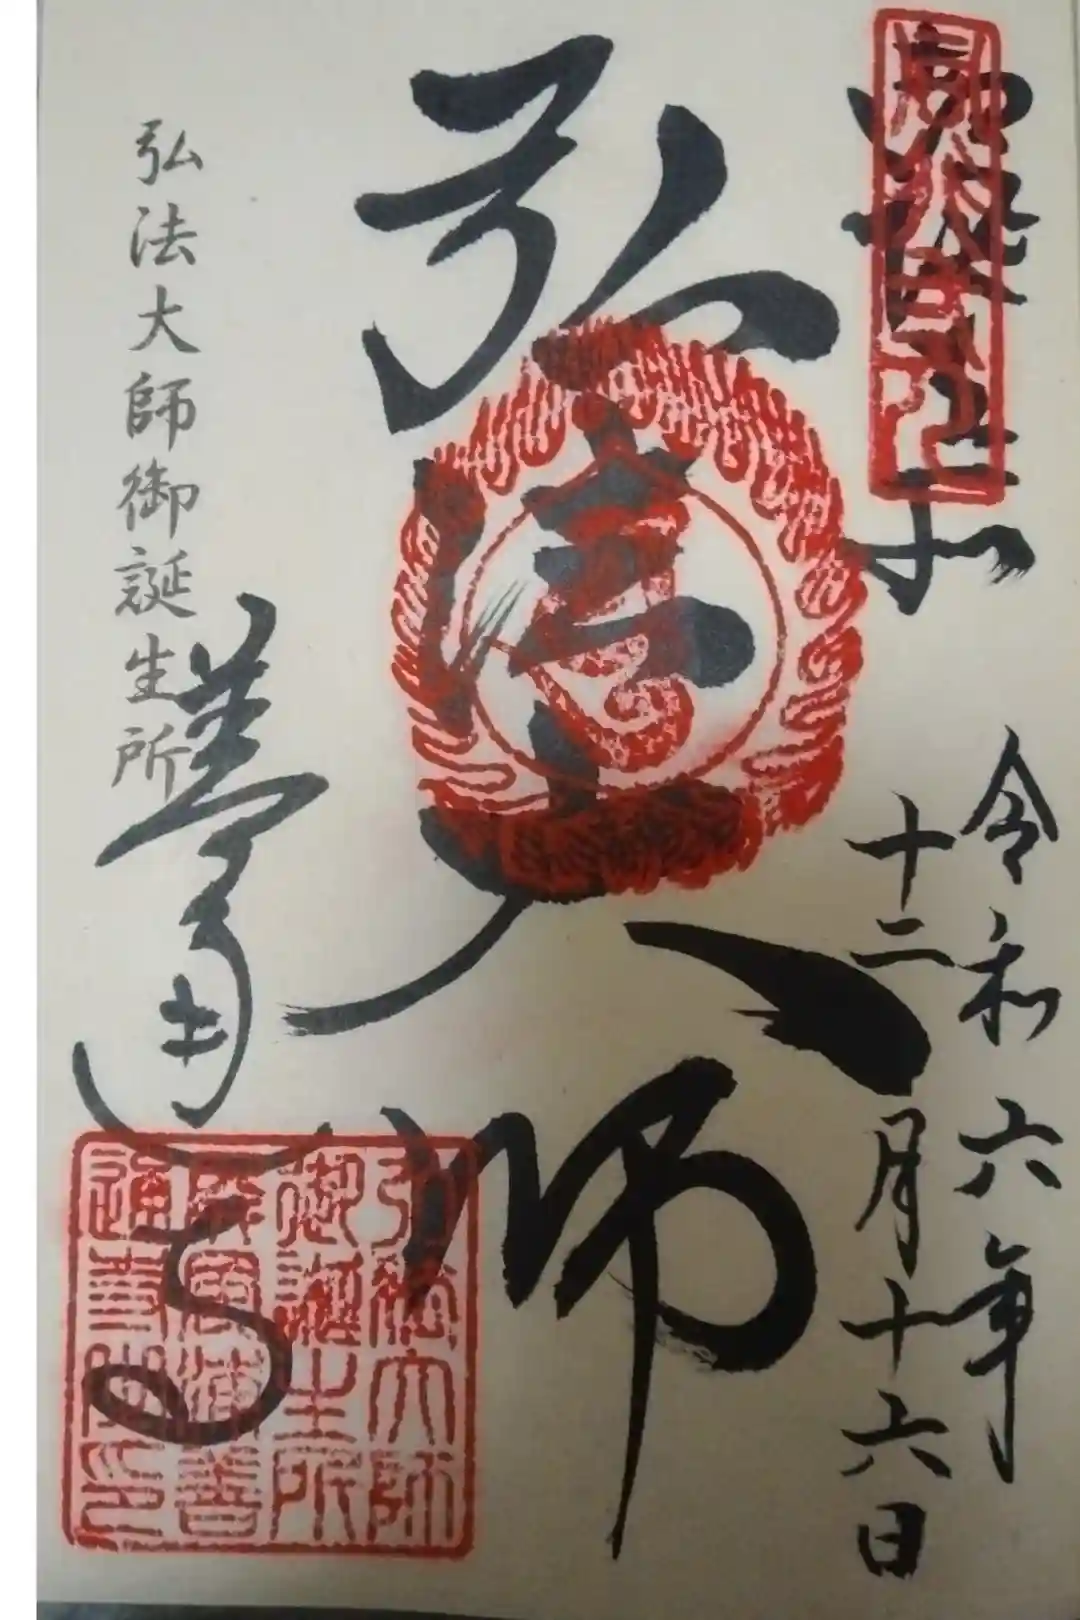 令和六年
十二月十六日
弘法大師
弘法大師御誕生所
善通寺
弘法大師
御誕生所
屏風浦善
通寺之印